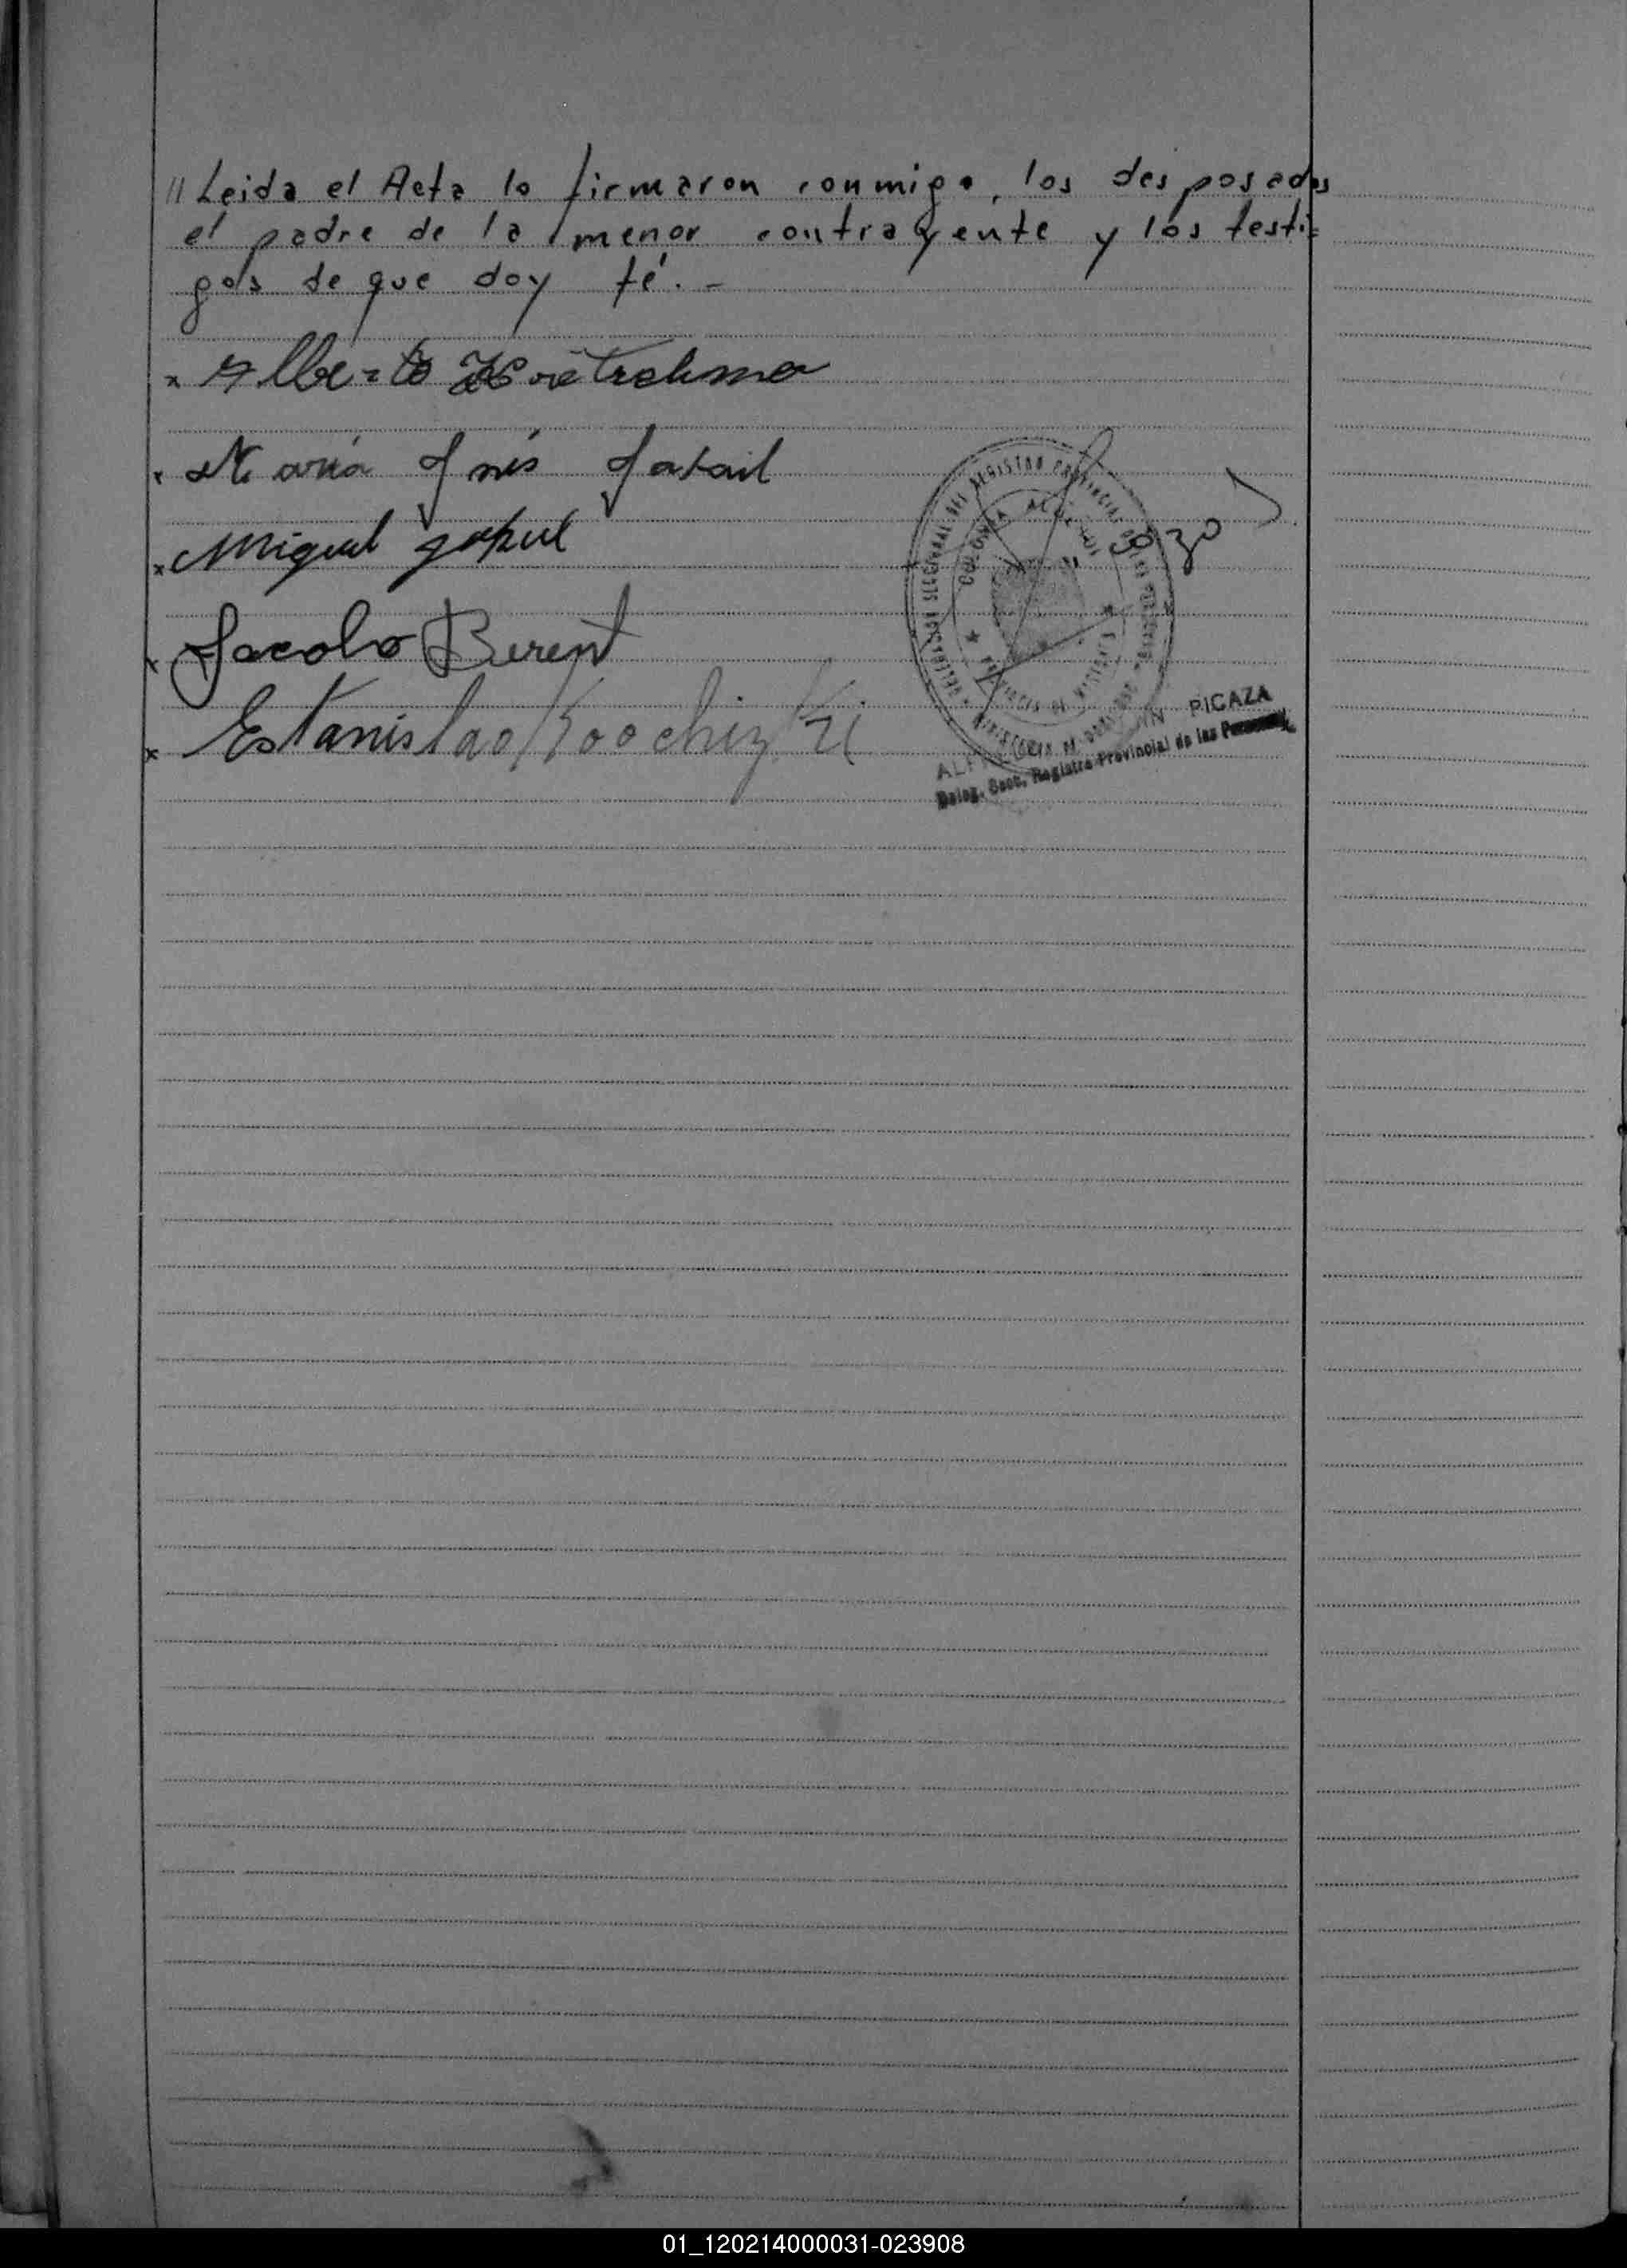 // Leida el Acta lo firmaron conmigo, los desposados
el padre de la menor contrayente y los testi=
gos de que doy fé. -
x Alberto
x Maria Inés
x Miguel
x Jacobo Berent
x Estanislao
DELEGACION SECCIONAL DEL REGISTRO PROVINCIAL DE LAS PERSONAS
COLONIA
PICAZA
Deleg. Secc. Registro Provincial de las Personas
01_120214000031-023908